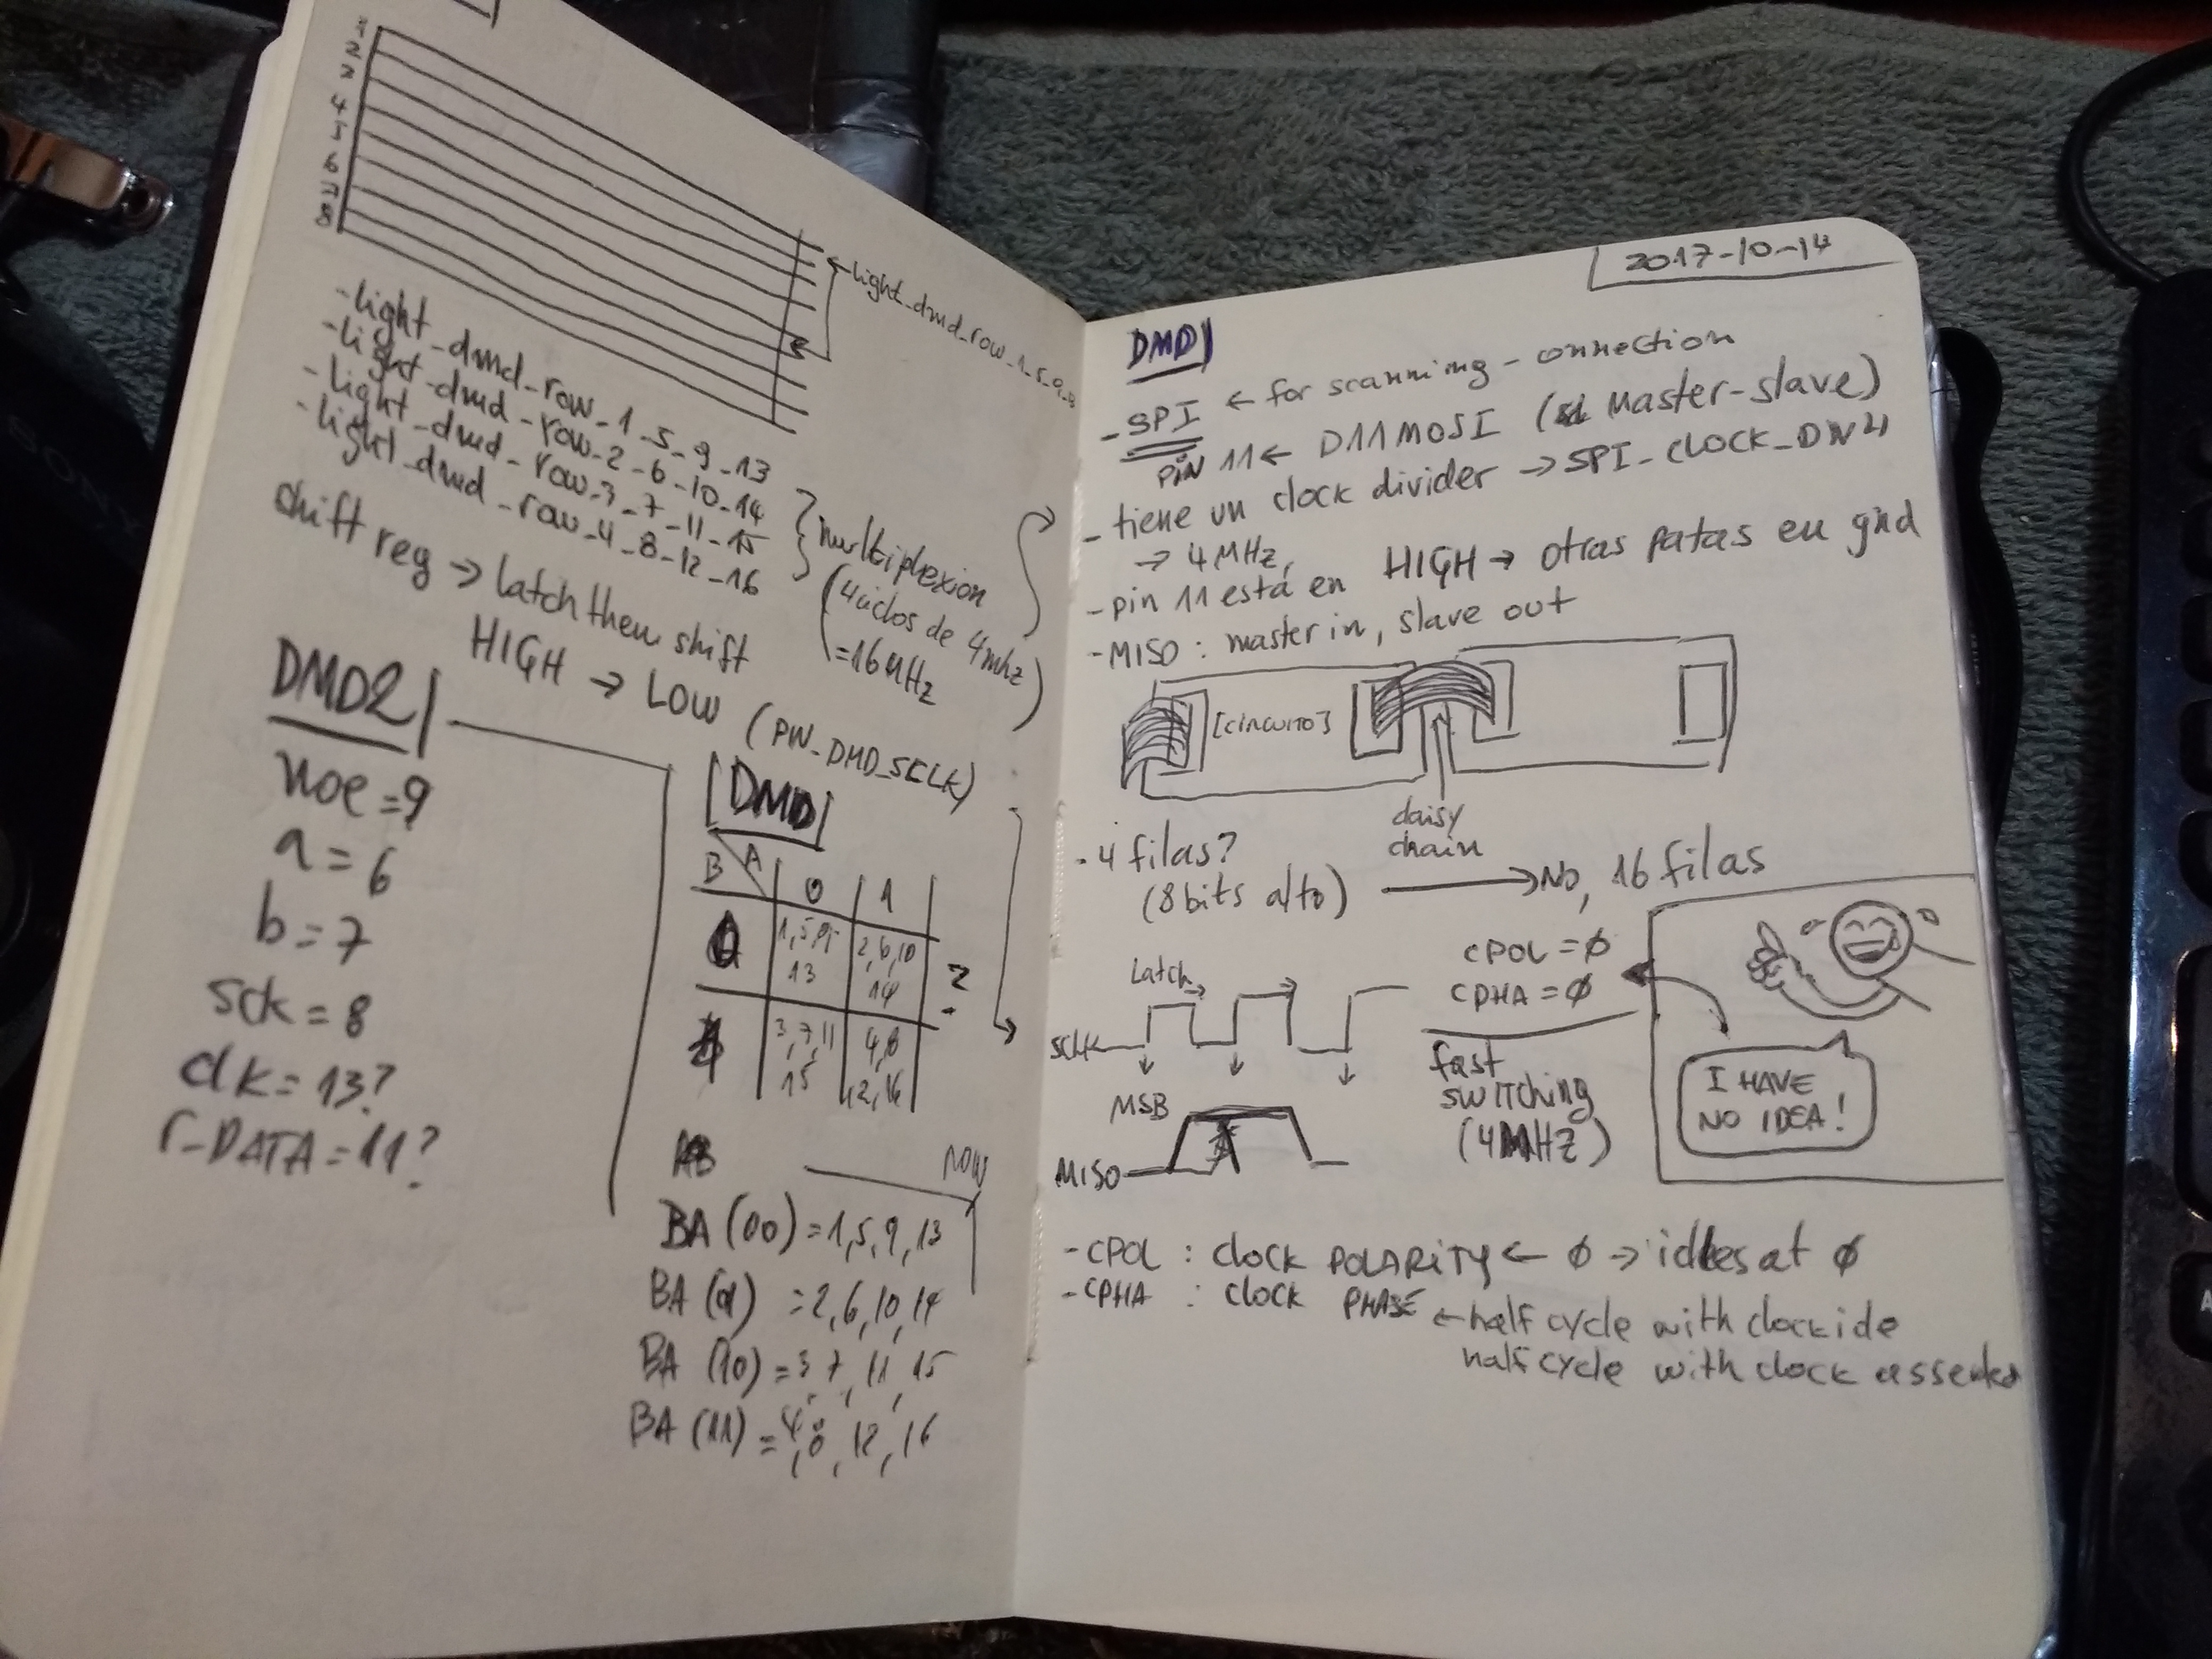 1
2
3
4
5
6
7
8
light_dmd_row_1_5_9_
-light_dmd_row_1_5_9_13
-light_dmd_row_2_6_10_14
-light_dmd_row_3_7_11_15
-light_dmd_row_4_8_12_16
multiplexion
(4 ciclos de 4mhz)
=16MHz
shift reg → latch then shift
HIGH → LOW (PIN_DMD_SCLK)
DMD2
noe = 9
a = 6
b = 7
sck = 8
clk = 13?
r_DATA = 11?
[DMD]
B A
0 1
0 1,5,9, 13 2,6,10 14
1 3,7,11 15 4,8 12,16
?
AB
now
BA (00) = 1,5,9,13
BA (01) = 2,6,10,14
BA (10) = 3,7,11,15
BA (11) = 4,8,12,16
2017-10-14
DMD1
- SPI ← for scanning - connection
PIN 11 ← D11 MOSI (Master-slave)
- tiene un clock divider → SPI_CLOCK_DIV4
→ 4 MHz,
- pin 11 está en HIGH → otras patas en gnd
- MISO : master in, slave out
[CIRCUITO]
daisy
chain
- 4 filas?
(8 bits alto) → No, 16 filas
Latch
SCLK
MSB
MISO
CPOL = ∅
CPHA = ∅
fast
switching
(4MHz)
I HAVE
NO IDEA!
- CPOL : clock POLARITY ← ∅ → idles at ∅
- CPHA : clock PHASE ← half cycle with clock idle
half cycle with clock asserted
SONY